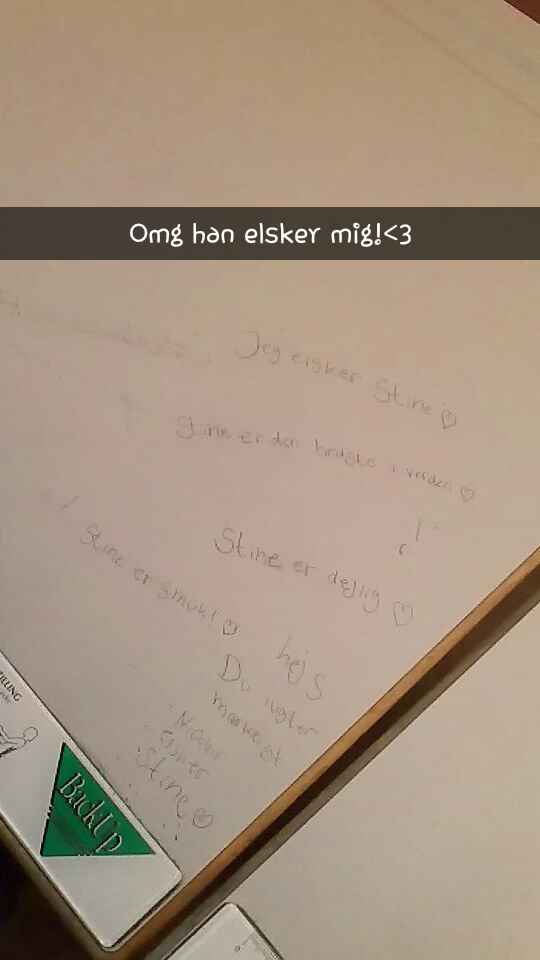 Omg han elsker mig!<3
Jeg elsker Stine ♡
Stine er den bedste i verden ♡
Stine er dejlig ♡
Stine er smuk! ♡
hejs
Du lugter
elsker
Stine ♡
BackUp